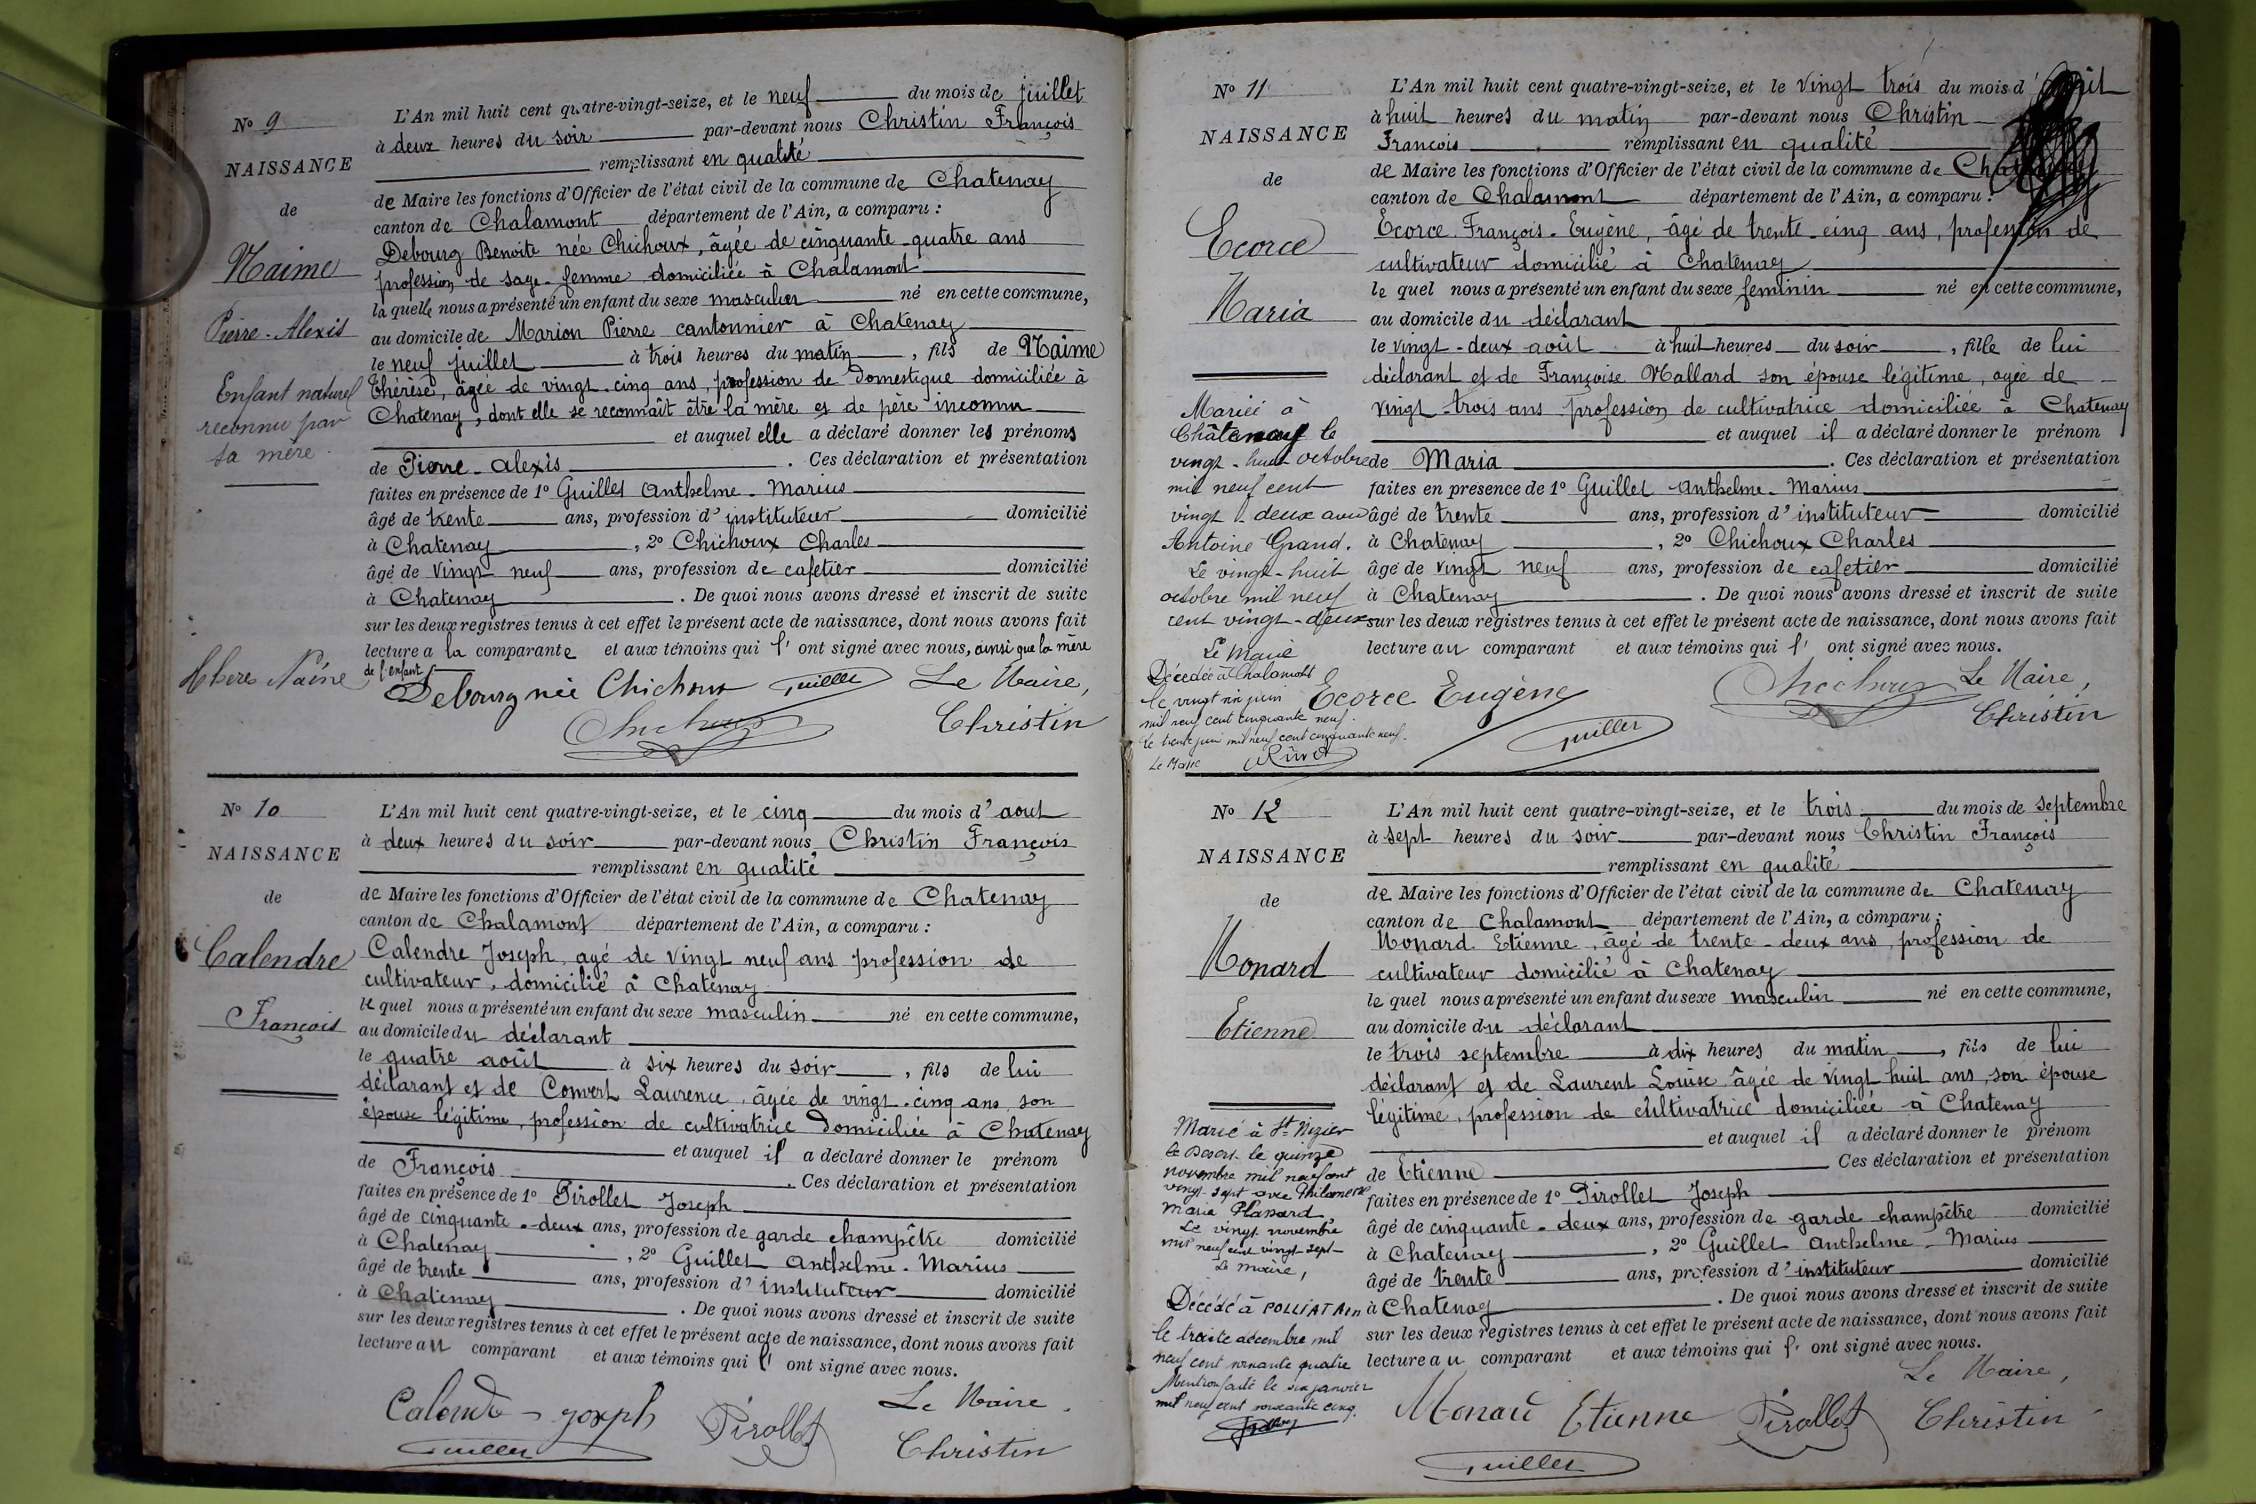 N° 9
NAISSANCE
de
Naime
Pierre-Alexis
Enfant naturel
reconnu par
sa mère.
L'An mil huit cent quatre-vingt-seize, et le neuf du mois de juillet
à deux heures du soir par-devant nous Christin François
remplissant en qualité
de Maire les fonctions d'Officier de l'état civil de la commune de Chatenay
canton de Chalamont département de l'Ain, a comparu :
Debourg Benoite née Chichoux, âgée de cinquante-quatre ans
profession de sage-femme domiciliée à Chalamont
la quelle nous a présenté un enfant du sexe masculin né en cette commune,
au domicile de Marion Pierre cantonnier à Chatenay
le neuf juillet à trois heures du matin, fils de Naime
Thérèse, âgée de vingt-cinq ans, profession de domestique domiciliée à
Chatenay, dont elle se reconnaît être la mère et de père inconnu
et auquel elle a déclaré donner les prénoms
de Pierre-Alexis. Ces déclaration et présentation
faites en présence de 1° Guillet Anthelme-Marius
âgé de trente ans, profession d'instituteur domicilié
à Chatenay, 2° Chichoux Charles
âgé de vingt neuf ans, profession de cafetier domicilié
à Chatenay. De quoi nous avons dressé et inscrit de suite
sur les deux registres tenus à cet effet le présent acte de naissance, dont nous avons fait
lecture a la comparante et aux témoins qui l'ont signé avec nous, ainsi que la mère
de l'enfant
Debourg née Chichoux Guillet Le Maire,
Chichoux Christin
N° 10
NAISSANCE
de
Calendre
François
L'An mil huit cent quatre-vingt-seize, et le cinq du mois d'aout
à deux heures du soir par-devant nous Christin François
remplissant en qualité
de Maire les fonctions d'Officier de l'état civil de la commune de Chatenay
canton de Chalamont département de l'Ain, a comparu :
Calendre Joseph, agé de vingt neuf ans profession de
cultivateur, domicilié à Chatenay
le quel nous a présenté un enfant du sexe masculin né en cette commune,
au domicile du déclarant
le quatre août à six heures du soir, fils de lui
déclarant et de Convert Laurence, âgée de vingt-cinq ans, son
épouse légitime, profession de cultivatrice domiciliée à Chatenay
et auquel il a déclaré donner le prénom
de François. Ces déclaration et présentation
faites en présence de 1° Pirollet Joseph
âgé de cinquante-deux ans, profession de garde champêtre domicilié
à Chatenay, 2° Guillet Anthelme-Marius
âgé de trente ans, profession d'instituteur domicilié
à Chatenay. De quoi nous avons dressé et inscrit de suite
sur les deux registres tenus à cet effet le présent acte de naissance, dont nous avons fait
lecture au comparant et aux témoins qui l'ont signé avec nous.
Le Maire,
Joseph Pirollet
Guillet Christin
N° 11
NAISSANCE
de
Ecorce
Maria
Mariée à
Châtenay le
vingt-huit octobre
mil neuf cent
vingt-deux avec
Antoine Grand.
Le vingt-huit
octobre mil neuf
cent vingt-deux
Le Maire
Décédée à Chalamont
le vingt juin
mil neuf cent cinquante neuf.
Le trente juin mil neuf cent cinquante neuf.
Le Maire
L'An mil huit cent quatre-vingt-seize, et le vingt trois du mois d'
à huit heures du matin par-devant nous Christin
François remplissant en qualité
de Maire les fonctions d'Officier de l'état civil de la commune de Chatenay
canton de Chalamont département de l'Ain, a comparu :
Ecorce François-Eugène, âgé de trente-cinq ans, profession de
cultivateur domicilié à Chatenay
le quel nous a présenté un enfant du sexe feminin né en cette commune,
au domicile du déclarant
le vingt-deux août à huit heures du soir, fille de lui
déclarant et de Françoise Mallard son épouse légitime, agée de
vingt-trois ans profession de cultivatrice domiciliée à Chatenay
et auquel il a déclaré donner le prénom
de Maria. Ces déclaration et présentation
faites en présence de 1° Guillet Anthelme-Marius
âgé de trente ans, profession d'instituteur domicilié
à Chatenay, 2° Chichoux Charles
âgé de vingt neuf ans, profession de cafetier domicilié
à Chatenay. De quoi nous avons dressé et inscrit de suite
sur les deux registres tenus à cet effet le présent acte de naissance, dont nous avons fait
lecture au comparant et aux témoins qui l'ont signé avec nous.
Ecorce Eugène Chichoux Le Maire,
Guillet Christin
N° 12
NAISSANCE
de
Monard
Etienne
Marié à St Nizier
le Desert le quinze
novembre mil neuf cent
vingt-sept avec Philomène
Marie Plassard
Le vingt novembre
mil neuf cent vingt-sept
Le maire,
Décédé à POLLIAT Ain
le trente décembre mil
neuf cent soixante quatre
Mention faite le six janvier
mil neuf cent soixante cinq.
L'An mil huit cent quatre-vingt-seize, et le trois du mois de septembre
à sept heures du soir par-devant nous Christin François
remplissant en qualité
de Maire les fonctions d'Officier de l'état civil de la commune de Chatenay
canton de Chalamont département de l'Ain, a comparu :
Monard Etienne, âgé de trente-deux ans, profession de
cultivateur domicilié à Chatenay
le quel nous a présenté un enfant du sexe masculin né en cette commune,
au domicile du déclarant
le trois septembre à dix heures du matin, fils de lui
déclarant et de Laurent Louise âgée de vingt huit ans, son épouse
légitime, profession de cultivatrice domiciliée à Chatenay
et auquel il a déclaré donner le prénom
de Etienne Ces déclaration et présentation
faites en présence de 1° Pirollet Joseph
âgé de cinquante-deux ans, profession de garde champêtre domicilié
à Chatenay, 2° Guillet Anthelme-Marius
âgé de trente ans, profession d'instituteur domicilié
à Chatenay. De quoi nous avons dressé et inscrit de suite
sur les deux registres tenus à cet effet le présent acte de naissance, dont nous avons fait
lecture au comparant et aux témoins qui l'ont signé avec nous.
Le Maire,
Etienne Pirollet Christin
Guillet